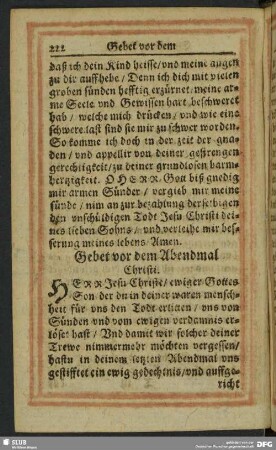 222 Gebet vor dem
daß ich dein Kind heisse/vnd meine augen
zu dir auffhebe/Denn ich dich mit vielen
groben sünden hefftig erzürnet/meine ar-
me Seele vnd Gewissen hart beschweret
hab/welche mich drücken/vnd wie eine
schwere last sind sie mir zu schwer worden.
So komme ich doch in der zeit der gna-
den/vnd appellir von deiner gestrengen
gerechtigkeit/zu deiner grundlosen barm-
hertzigkeit. O HERR Gott biß gnedig
mir armen Sünder/vergieb mir meine
sünde/nim an zur bezahlung derselbigen
den vnschüldigen Todt Jesu Christi dei-
nes lieben Sohns/vnd verleihe mir bes-
serung meines lebens Amen.
Gebet vor dem Abendmal
Christi.
HERR Jesu Christe/ewiger Gottes
Son der du in deiner waren mensch-
heit für vns den Todt erlitten/vns von
Sünden vnd vom ewigen verdamnis er-
löset hast/Vnd damit wir solcher deiner
Trewe nimmermehr möchten vergessen/
hastu in deinem letzten Abendmal vns
gestifftet ein ewig gedechtnis/vnd auffge-
richt
SLUB
DFG